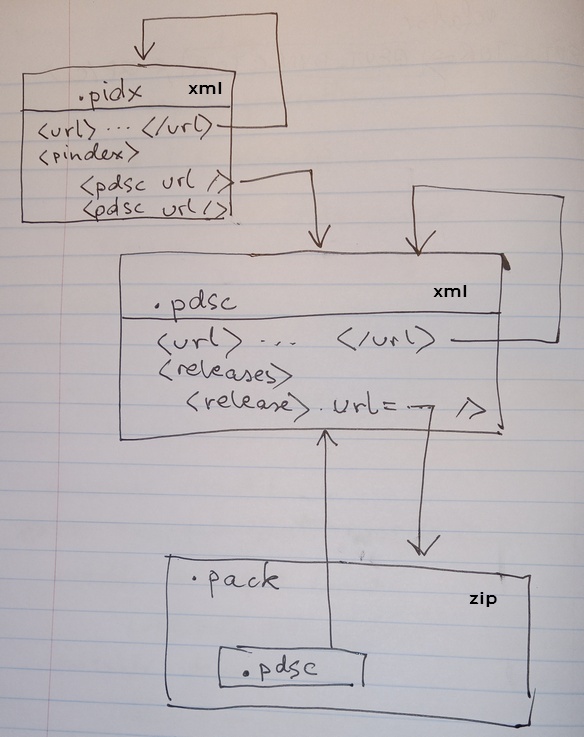 .pidx xml
<url> ... </url>
<pindex>
<pdsc url />
<pdsc url />
.pdsc xml
<url> ... </url>
<releases>
<release>. url= />
.pack zip
.pdsc